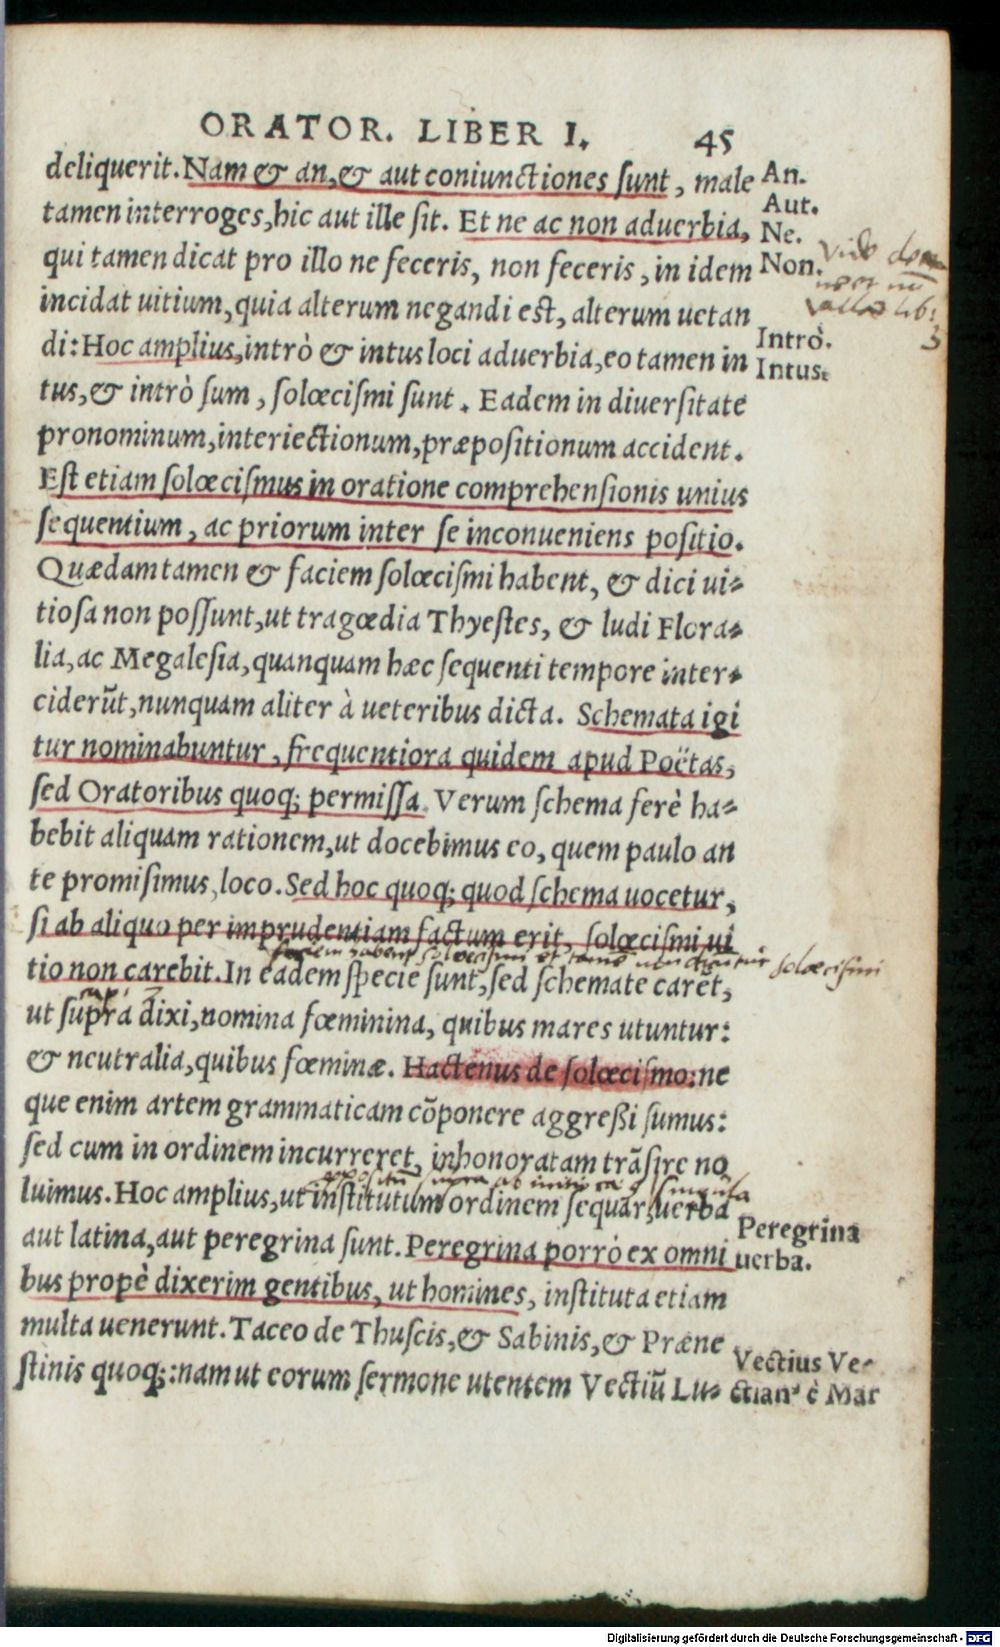 ORATOR. LIBER I. 45
deliquerit. Nam & an, & aut coniunctiones sunt, male
tamen interroges, hic aut ille sit. Et ne ac non aduerbia,
qui tamen dicat pro illo ne feceris, non feceris, in idem
incidat uitium, quia alterum negandi est, alterum uetan
di: Hoc amplius, intrò & intus loci aduerbia, eo tamen in
tus, & intrò sum, solœcismi sunt. Eadem in diuersitate
pronominum, interiectionum, præpositionum accident.
Est etiam solœcismus in oratione comprehensionis unius
sequentium, ac priorum inter se inconueniens positio.
Quædam tamen & faciem solœcismi habent, & dici ui-
tiosa non possunt, ut tragœdia Thyestes, & ludi Flora-
lia, ac Megalesia, quanquam hæc sequenti tempore inter-
ciderũt, nunquam aliter à ueteribus dicta. Schemata igi
tur nominabuntur, frequentiora quidem apud Poëtas,
sed Oratoribus quoq; permissa. Verum schema ferè ha-
bebit aliquam rationem, ut docebimus eo, quem paulo an
te promisimus, loco. Sed hoc quoq; quod schema uocetur,
si ab aliquo per imprudentiam factum erit, solœcismi ui
faciem habent solœcismi et tamē non dicuntur solœcismi
tio non carebit. In eadem specie sunt, sed schemate carēt,
ut supra dixi, nomina fœminina, quibus mares utuntur:
& neutralia, quibus fœminæ. Hactenus de solœcismo: ne
que enim artem grammaticam cõponere aggreßi sumus:
sed cum in ordinem incurreret, inhonoratam trãsire no
luimus. Hoc amplius, ut institutum ordinem sequar, uerba
aut latina, aut peregrina sunt. Peregrina porrò ex omni
bus propè dixerim gentibus, ut homines, instituta etiam
multa uenerunt. Taceo de Thuscis, & Sabinis, & Præne
stinis quoq;: nam ut eorum sermone utentem Vectiũ Lu-
An.
Aut.
Ne.
Non.
Vide
lib:
3
Intrò.
Intus.
Peregrina
uerba.
Vectius Ve-
ctian⁹ è Mar
Digitalisierung gefördert durch die Deutsche Forschungsgemeinschaft - DFG